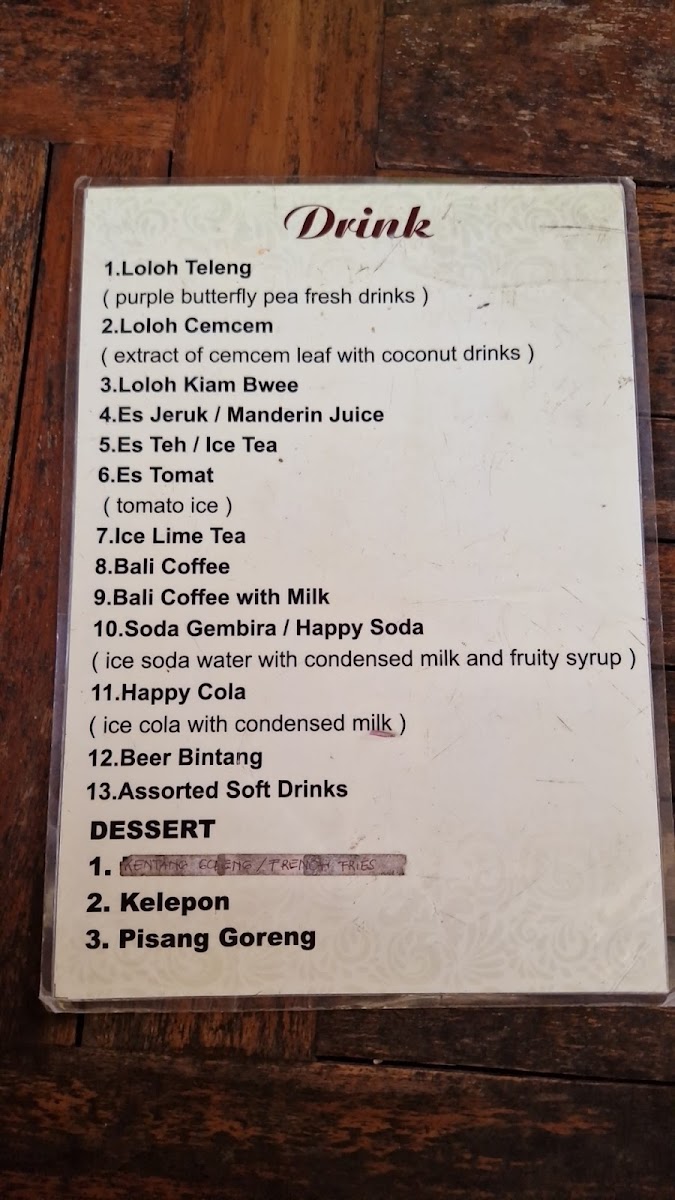 Drink
1.Loloh Teleng
( purple butterfly pea fresh drinks )
2.Loloh Cemcem
( extract of cemcem leaf with coconut drinks )
3.Loloh Kiam Bwee
4.Es Jeruk / Manderin Juice
5.Es Teh / Ice Tea
6.Es Tomat
( tomato ice )
7.Ice Lime Tea
8.Bali Coffee
9.Bali Coffee with Milk
10.Soda Gembira / Happy Soda
( ice soda water with condensed milk and fruity syrup )
11.Happy Cola
( ice cola with condensed milk )
12.Beer Bintang
13.Assorted Soft Drinks
DESSERT
1. KENTANG GORENG / FRENCH FRIES
2. Kelepon
3. Pisang Goreng